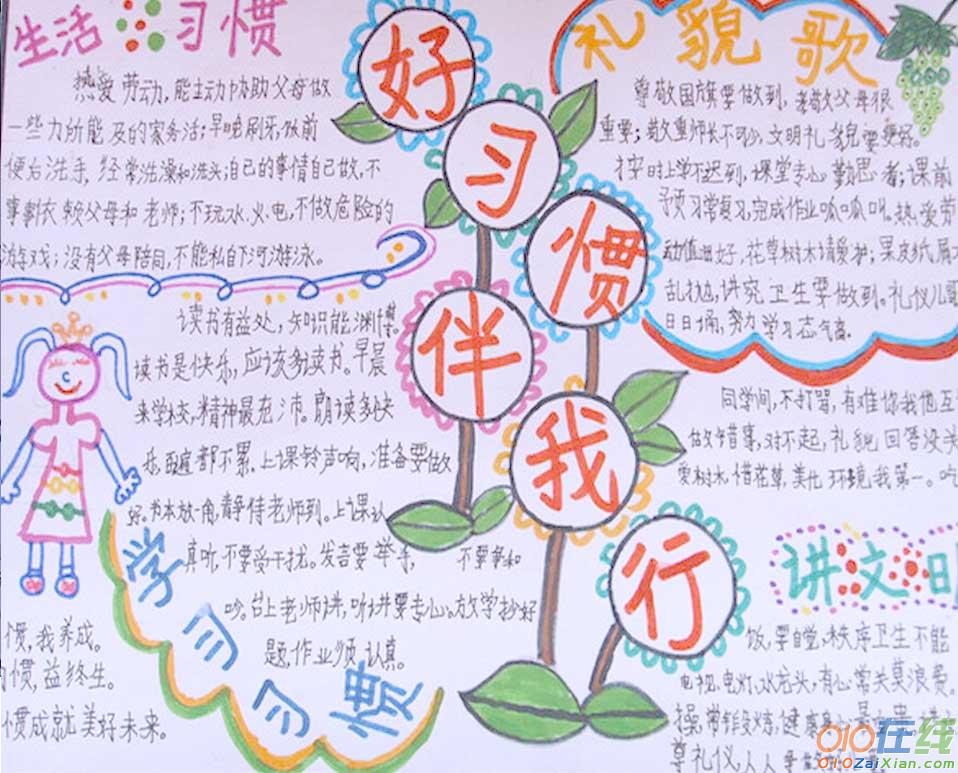 生活习惯
热爱劳动,能主动协助父母做
一些力所能及的家务活;早晚刷牙,饭前
便后洗手,经常洗澡和洗头;自己的事情自己做,不
事事依赖父母和老师;不玩水、火、电,不做危险的
游戏;没有父母陪同,不能私自下河游泳。
好习惯伴我行
礼貌歌
尊敬国旗要做到,孝敬父母很
重要;敬重师长不可少,文明礼貌要更好。
按时上学不迟到,课堂专心勤思考;课前
预习常复习,完成作业呱呱叫。热爱劳
动值日好,花草树木请爱护;果皮纸屑
乱抛,讲究卫生要做到。礼仪儿歌
日日诵,努力学习志气高
读书有益处,知识能渊博。
读书是快乐,应该多读书。早晨
来学校,精神最充沛。朗读多快
都不累。上课铃声响,准备要做
好。书本放一角,静待老师到。上课认
真听,不要受干扰。发言要举手,不要争和
吵。台上老师讲,听讲要专心。放学抄好
题,作业须认真。
学习习惯
惯,我养成。
惯,益终生。
惯成就美好未来。
同学间,不打骂,有难你我他互
做错事,对不起,礼貌回答没关
爱树木,惜花草,美化环境我第一。吃
讲文明
饭,要自觉,秩序卫生不能
电视、电灯、水龙头,有心常关莫浪费。
操,常锻炼,健康身心
尊礼仪,人人
010在线
010ZaiXian.com